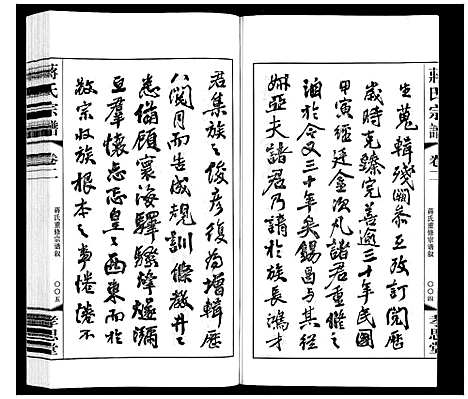 蔣氏宗譜 卷二
蔣氏重修宗譜叙
〇〇四
孝思堂
生蒐輯殘闕參互改訂閱歷
歲時克臻完善逾三十年民國
甲寅經廷金次凡諸君重修之
洎於今又三十年矣錫昌與其從
姊亞夫諸君乃請於族長鴻才
君集族之俊彥復為增輯歷
八閱月而告成規訓條教井井
悉備顧寰海驛騷烽燧瀰
亘羣懷忐忑皇皇西東而於
敬宗收族根本之事惓惓不
蔣氏宗譜 卷二
蔣氏重修宗譜叙
〇〇五
孝思堂